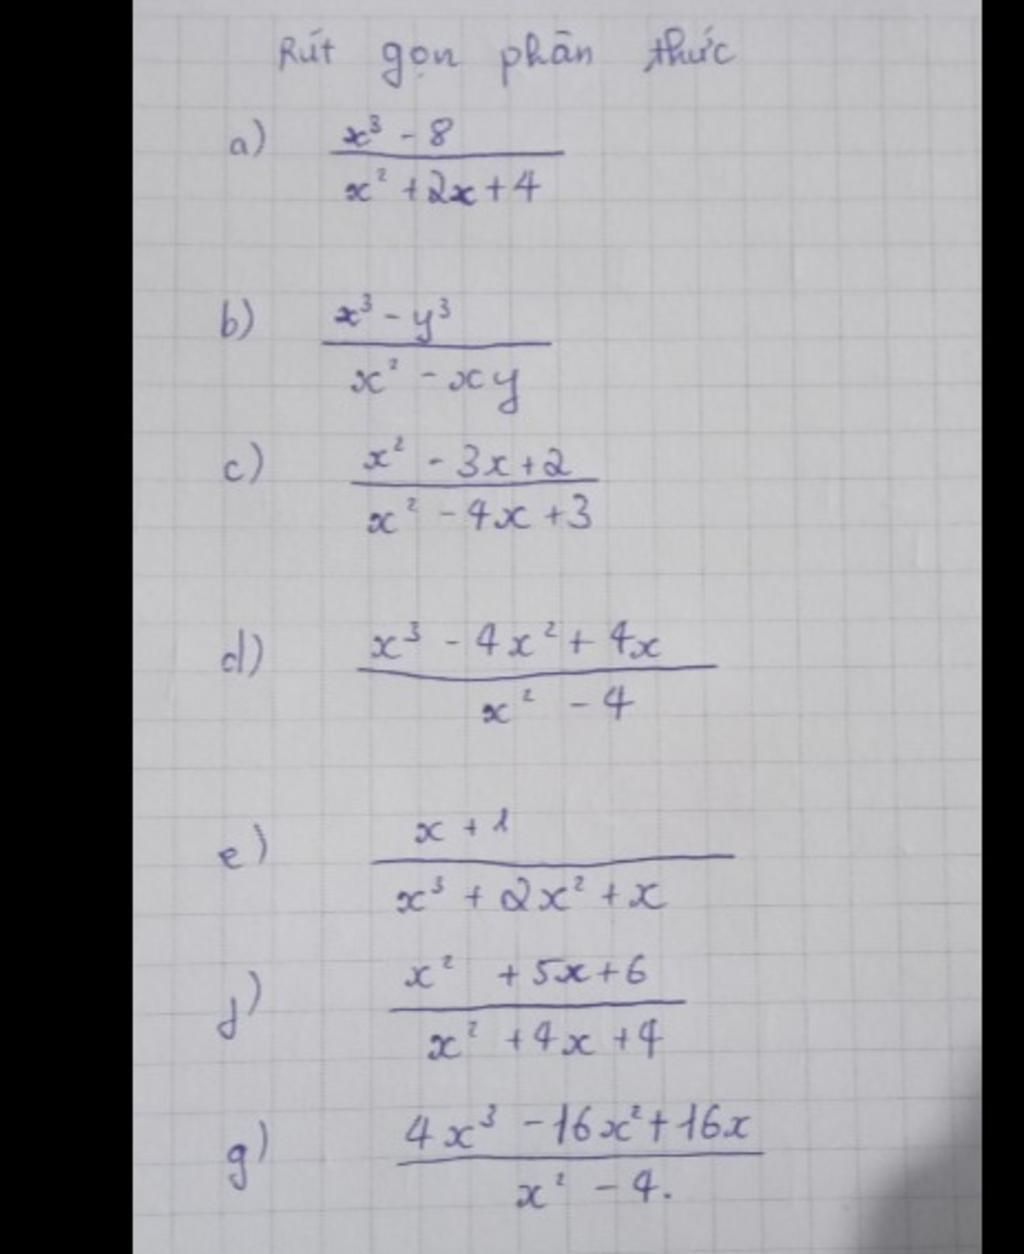 Rút gọn phân thức
a) x³ - 8
x² + 2x + 4
b) x³ - y³
x² - xy
c) x² - 3x + 2
x² - 4x + 3
d) x³ - 4x² + 4x
x² - 4
e) x + 1
x³ + 2x² + x
f) x² + 5x + 6
x² + 4x + 4
g) 4x³ - 16x² + 16x
x² - 4.